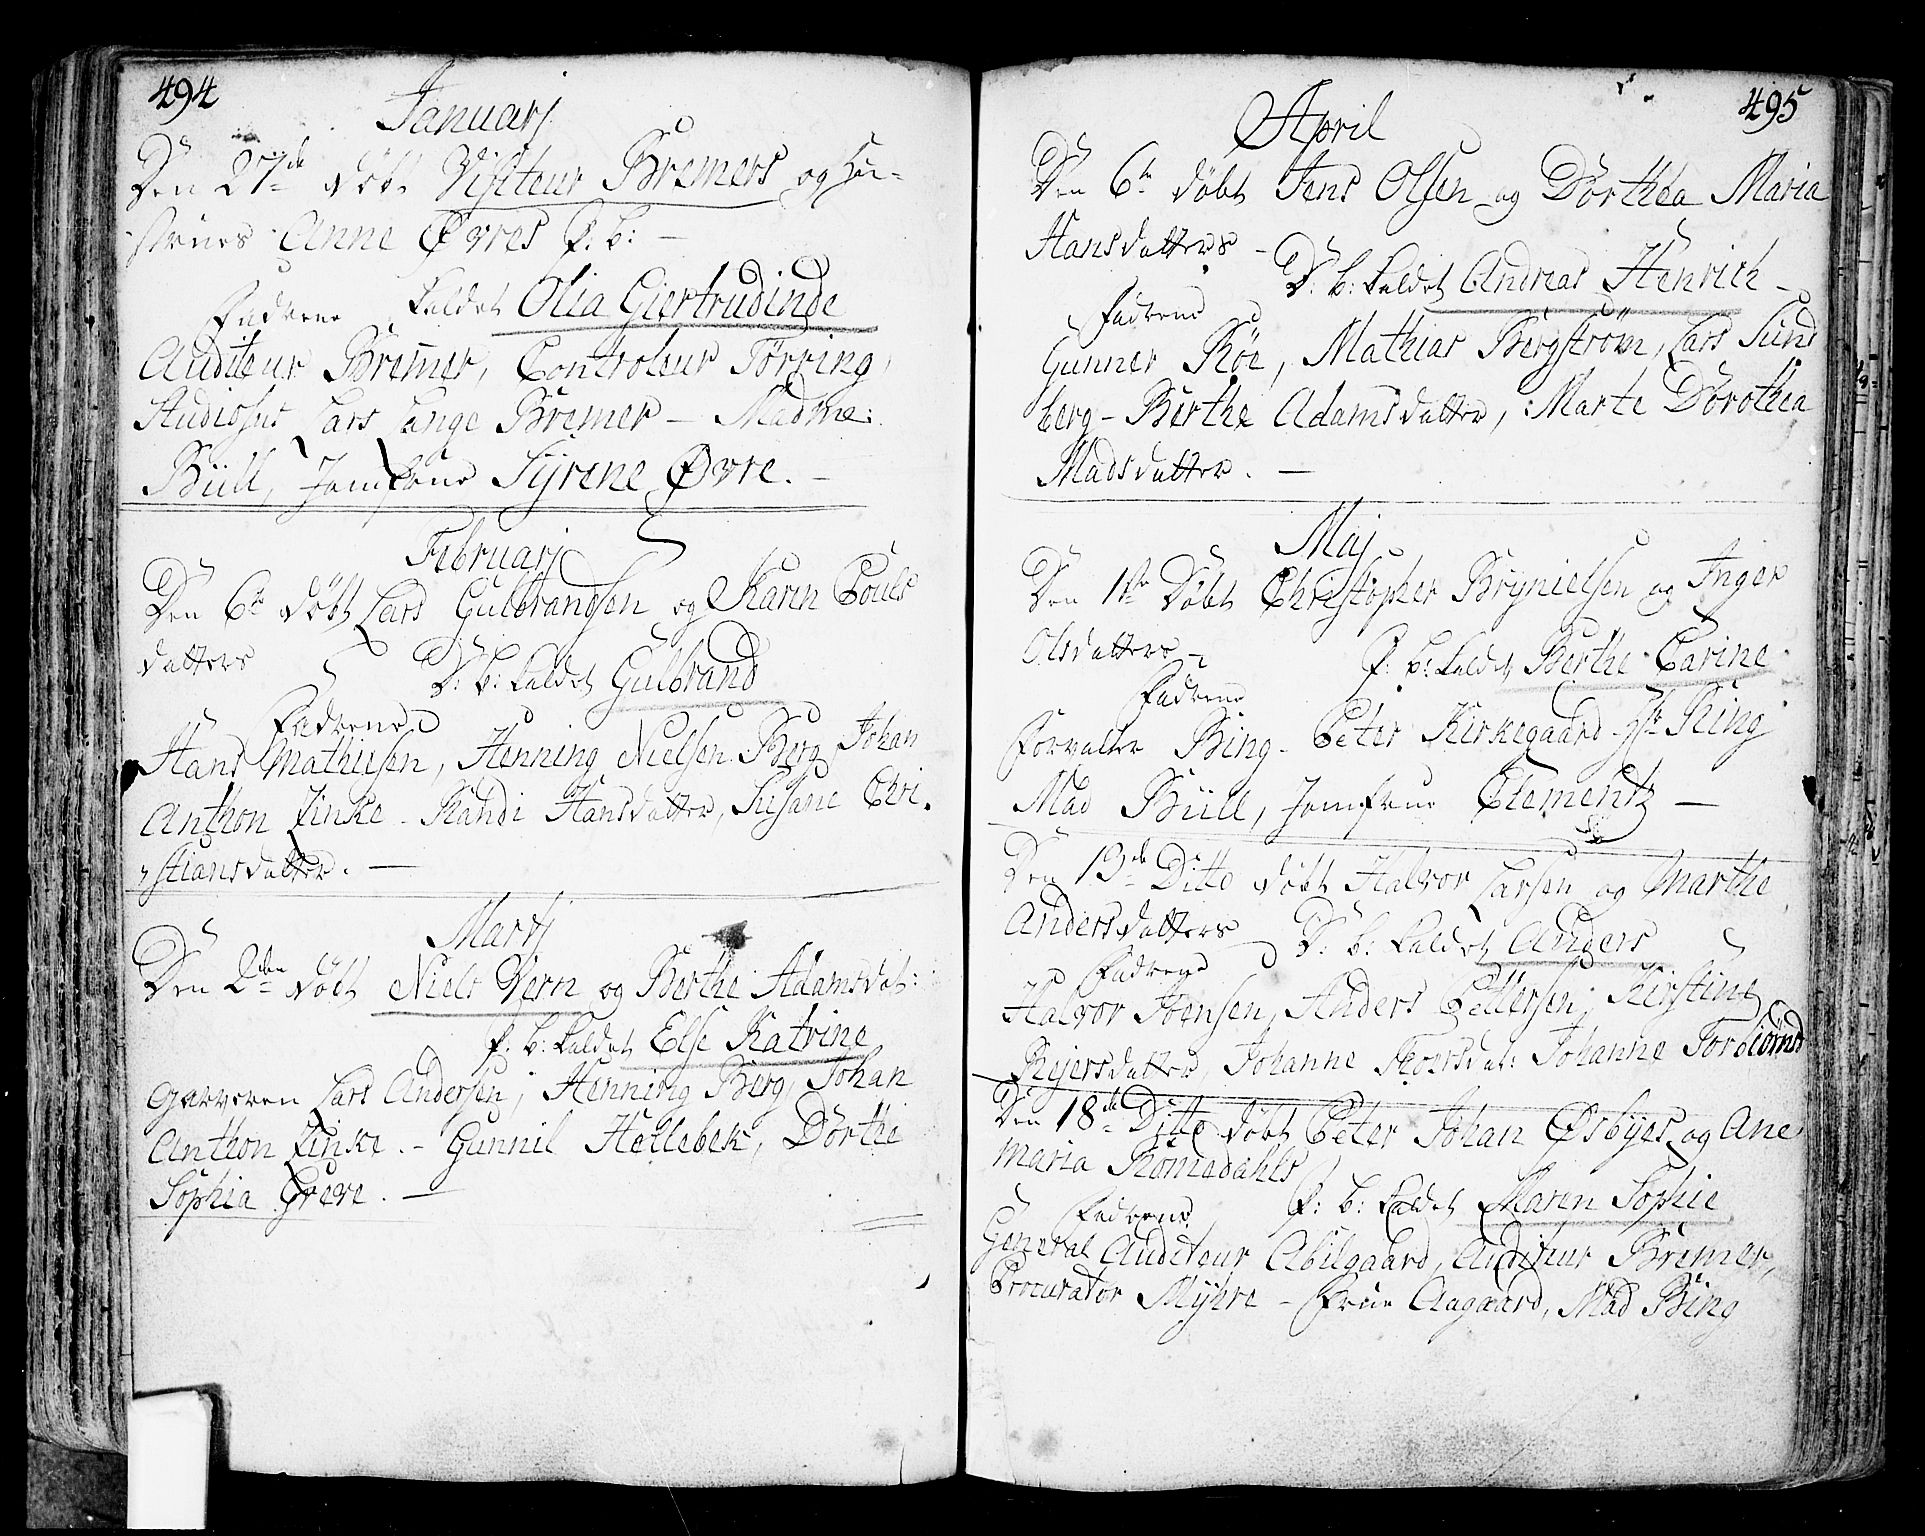 494
Januarj
Den 27de døbt Visiteur Bremers og Hu-
strues Anne Øvres P. b: —
Faderne kaldet Olia Giertrudinde
Auditeur Bremer, Controleur Tørring,
Studiosus Lars Lange Bremer — Madme:
Büll, Jomfrue Syrene Øvre. —
Februarj
Den 6te døbt Lars Gulbrandsen og Karen Pouls
datters D: b: kaldet Gulbrand
Fadderne
Hans Mathiesen, Henning Nielsen Berg, Johan
Anthon Linke - Randi Hansdatter, Susane Chri-
stiansdatter. —
Martj
Den 2den døbt Niels Vern og Berthe Adamsdat:
P. b: kaldet Else Katrine
Garveren Lars Andersen, Henning Berg, Johan
Anthon Linke. - Gunnil Hellebek, Dorthe
Sophia Greve. —
495
April
Den 6te døbt Jens Olsen og Dorthea Maria
Hansdatters - D: b: kaldet Andreas Henrich -
Fadrene
Gunner Röe, Mathias Bergström, Lars Sund
berg - Berthe Adamsdatter, Marte Dorothea
Madsdatter. —
Maj
Den 1ste Døbt Christopher Brynielsen og Inger
Olsdatters - P: b: kaldet Berthe Carine
Fadrene
Forvalter Bing - Peter Kirkegaard - Hr Ring
Mad Büll, Jomfrue Clementz —
Den 13de Ditto døbt Halvor Larsen og Marthe
Andersdatters D: b: kaldet Anders
Fadrene
Halvor Joensen, Anders Pettersen, Kirstine
Rejersdatter, Johanne Thorsdat: Johanne Tordiørnd
Den 18de Ditto døbt Peter Johan Øsbyes og Ane
Maria Romedahls P: b: kaldet Maren Sophie
Fadrene
General Auditeur Abilgaard, Auditeur Bremer,
Procurator Myhre - Frue Aagaard, Mad Bing